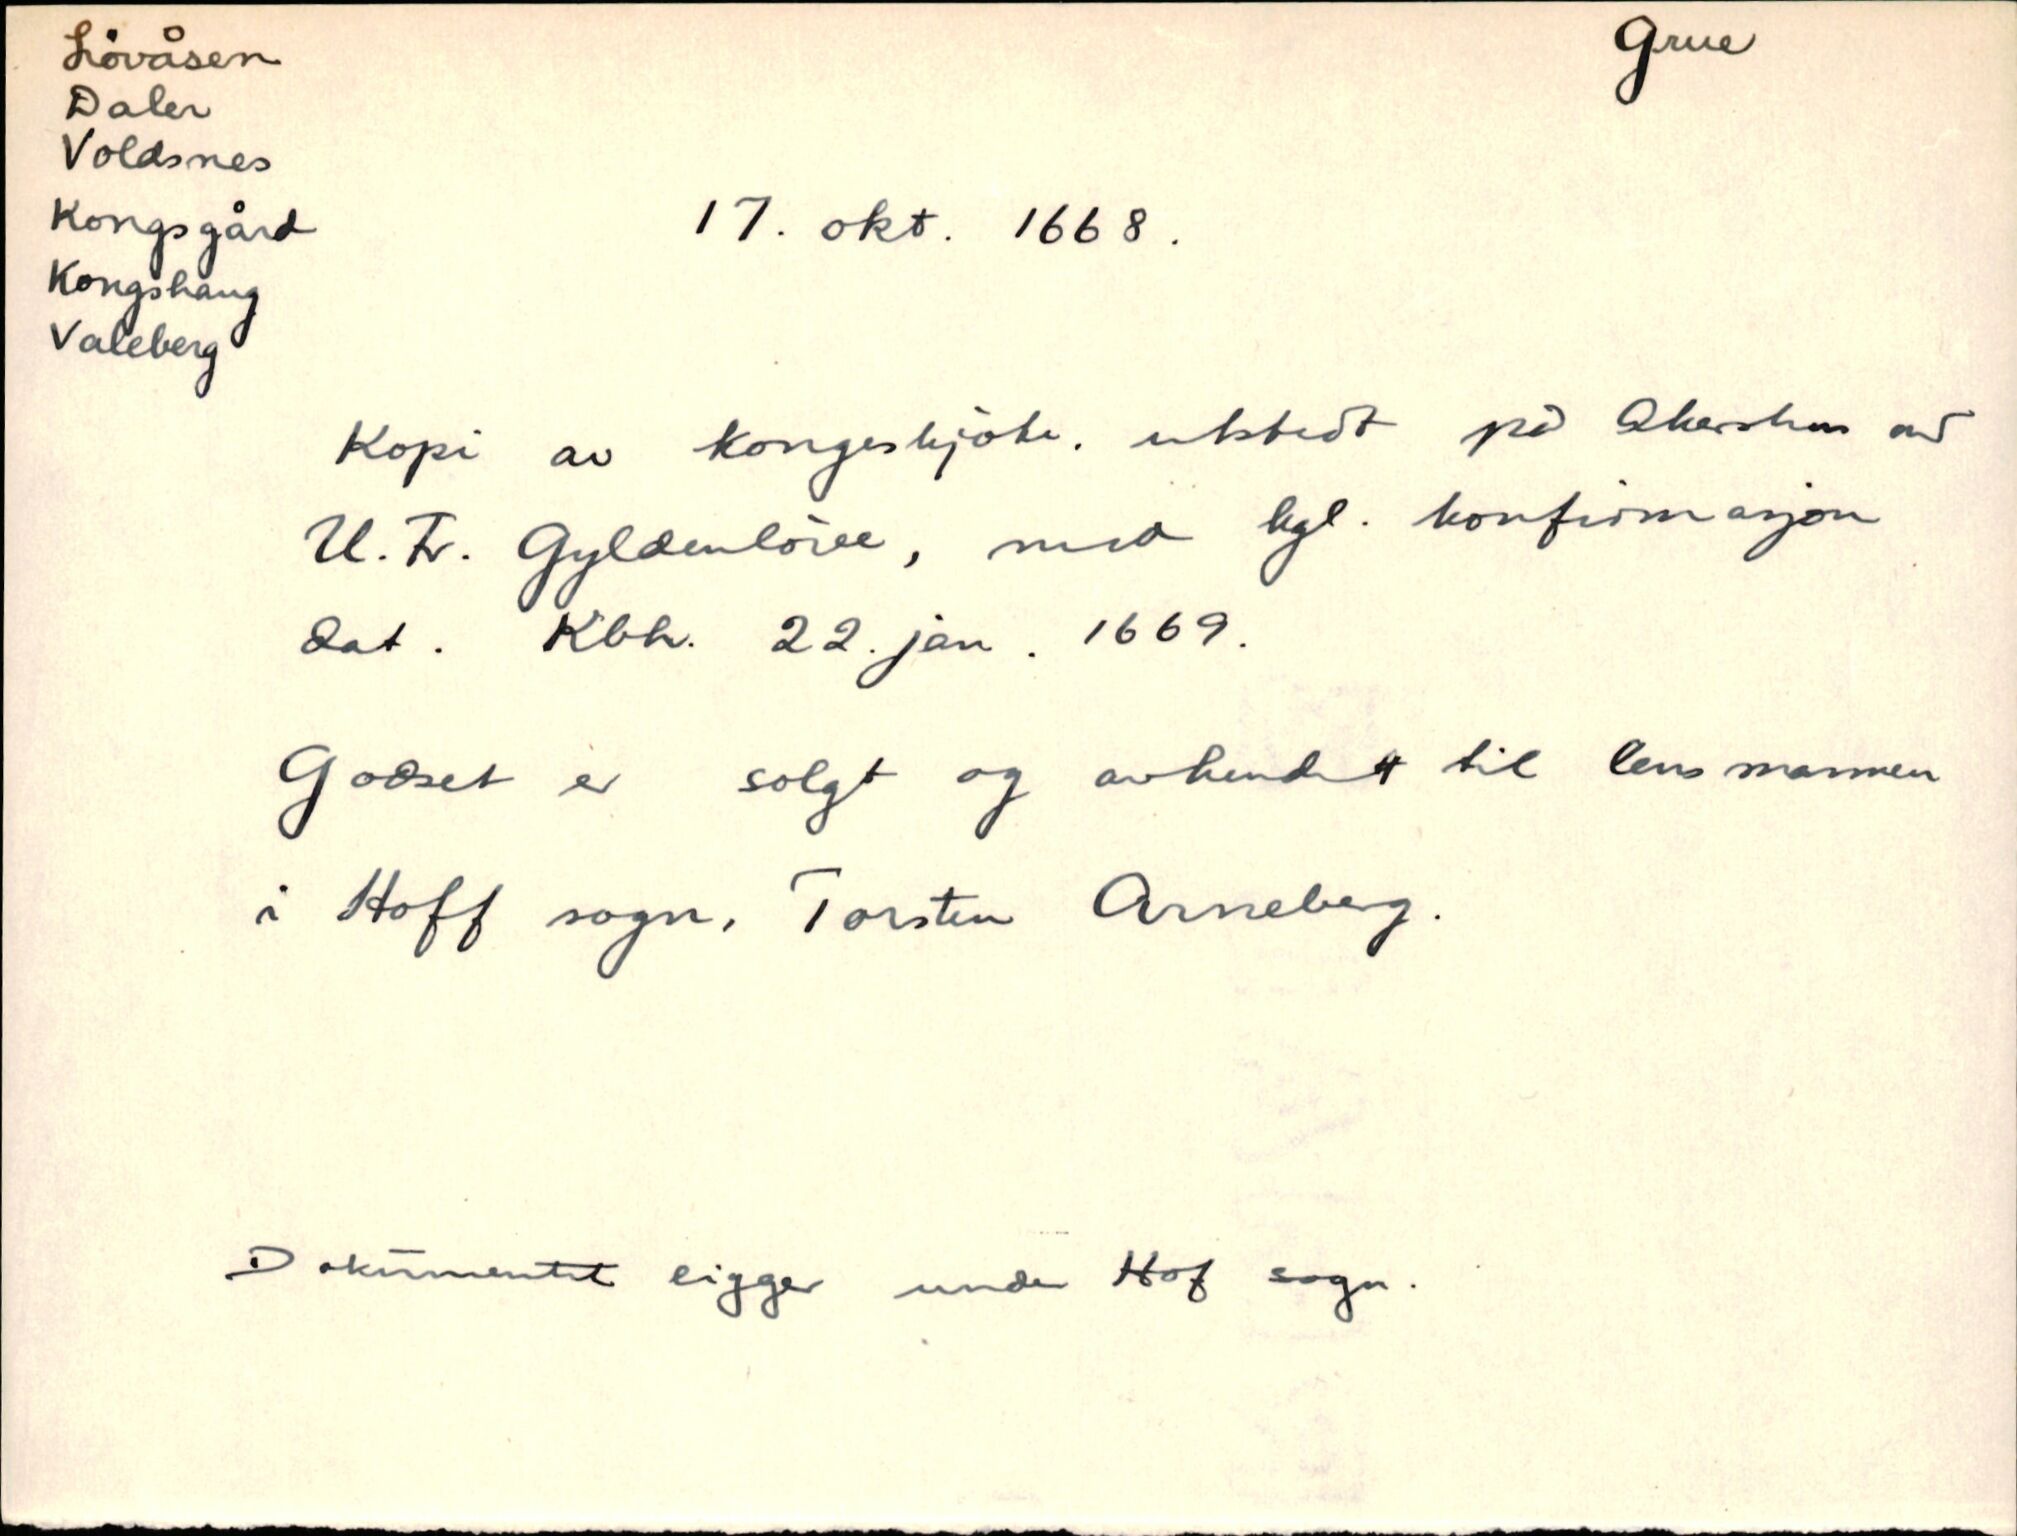 Lövåsen
Daler
Voldsnes
Kongsgård
Kongshaug
Valeberg
Grue
17. okt. 1668.
Kopi av kongeskjöte. utstedt på Akershus av
U. Fr. Gyldenlöve, med kgl. konfirmasjon
dat. Kbh. 22. jan. 1669.
Godset er solgt og avhendet til lensmannen
i Hoff sogn, Torsten Arneberg.
Dokumentet ligger under Hof sogn.